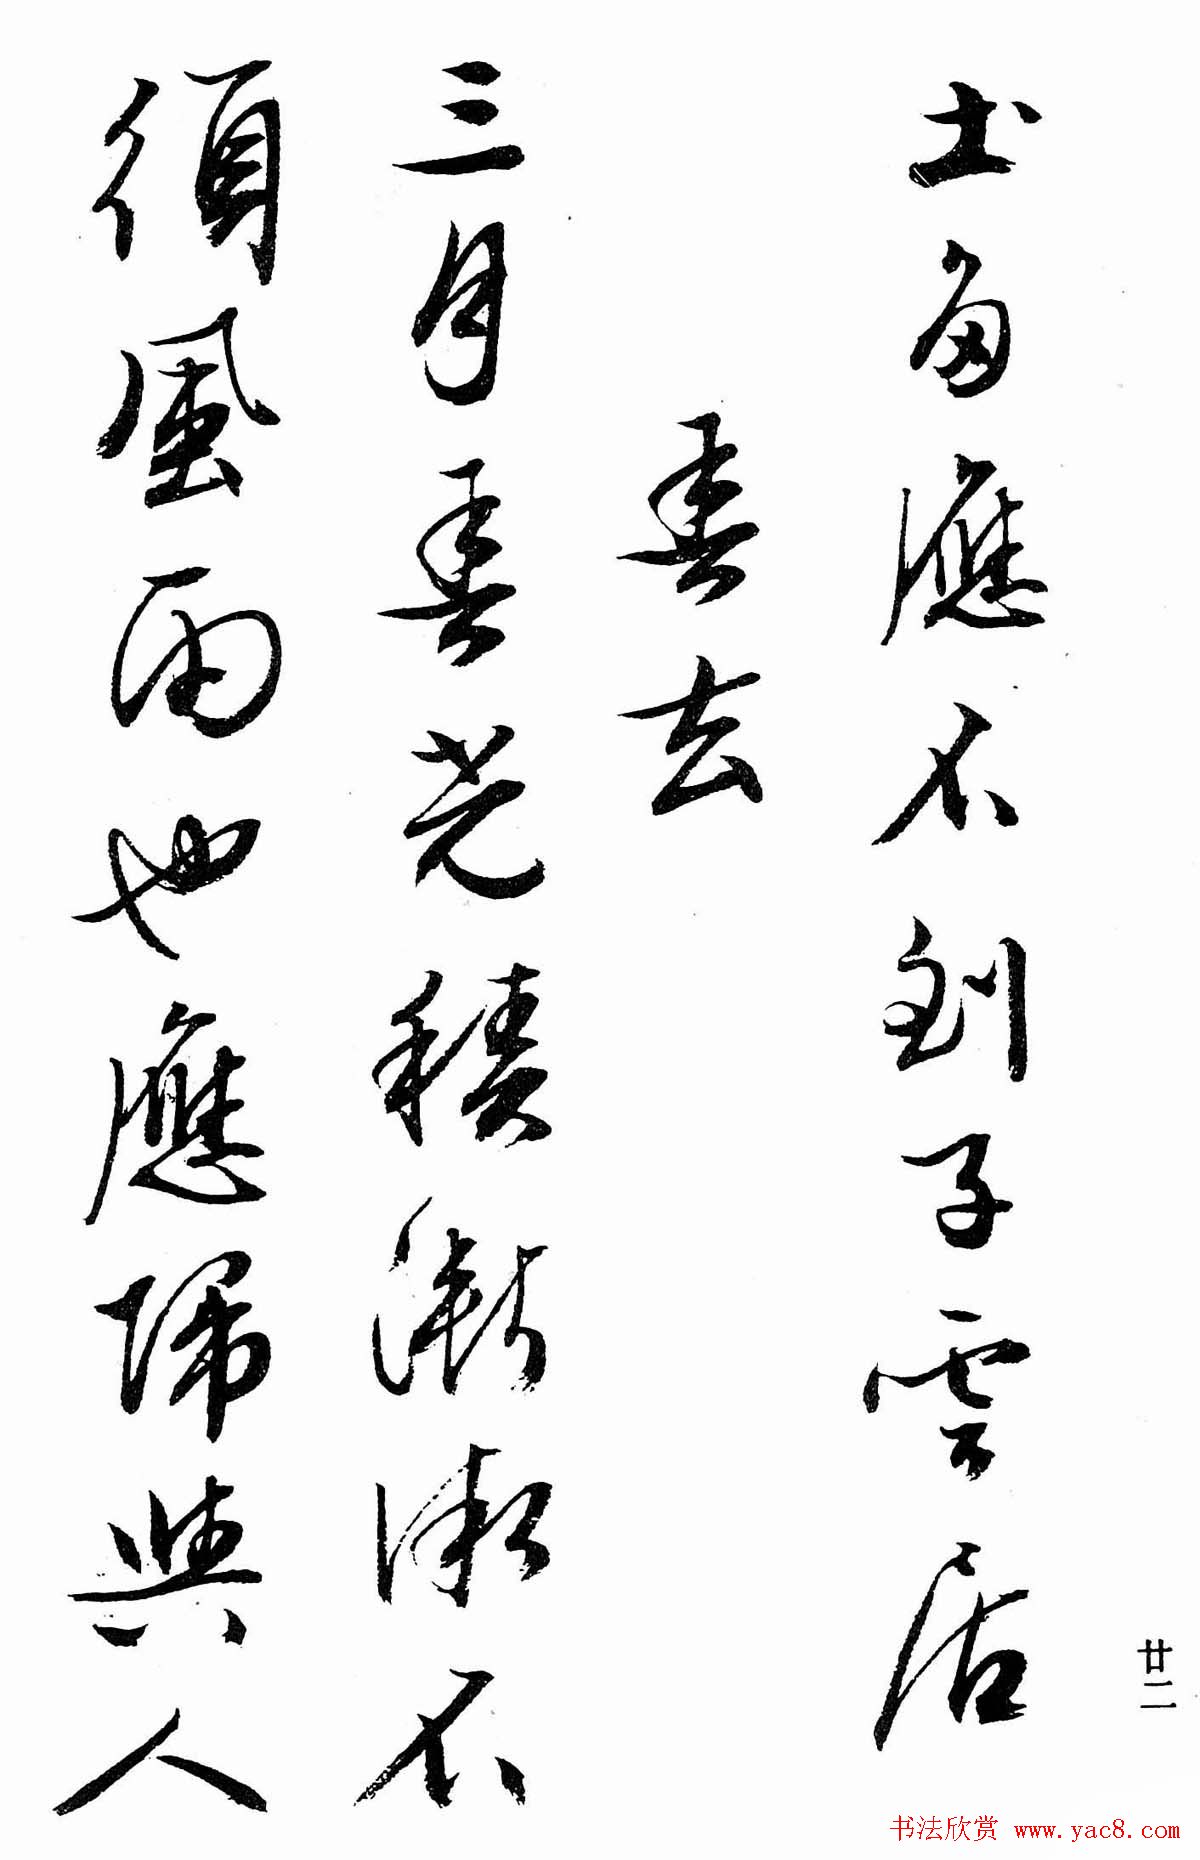 土多應不到子雲居
春去
三月春光積漸微不
須風雨也應歸與人
廿二
书法欣赏 www.yac8.com